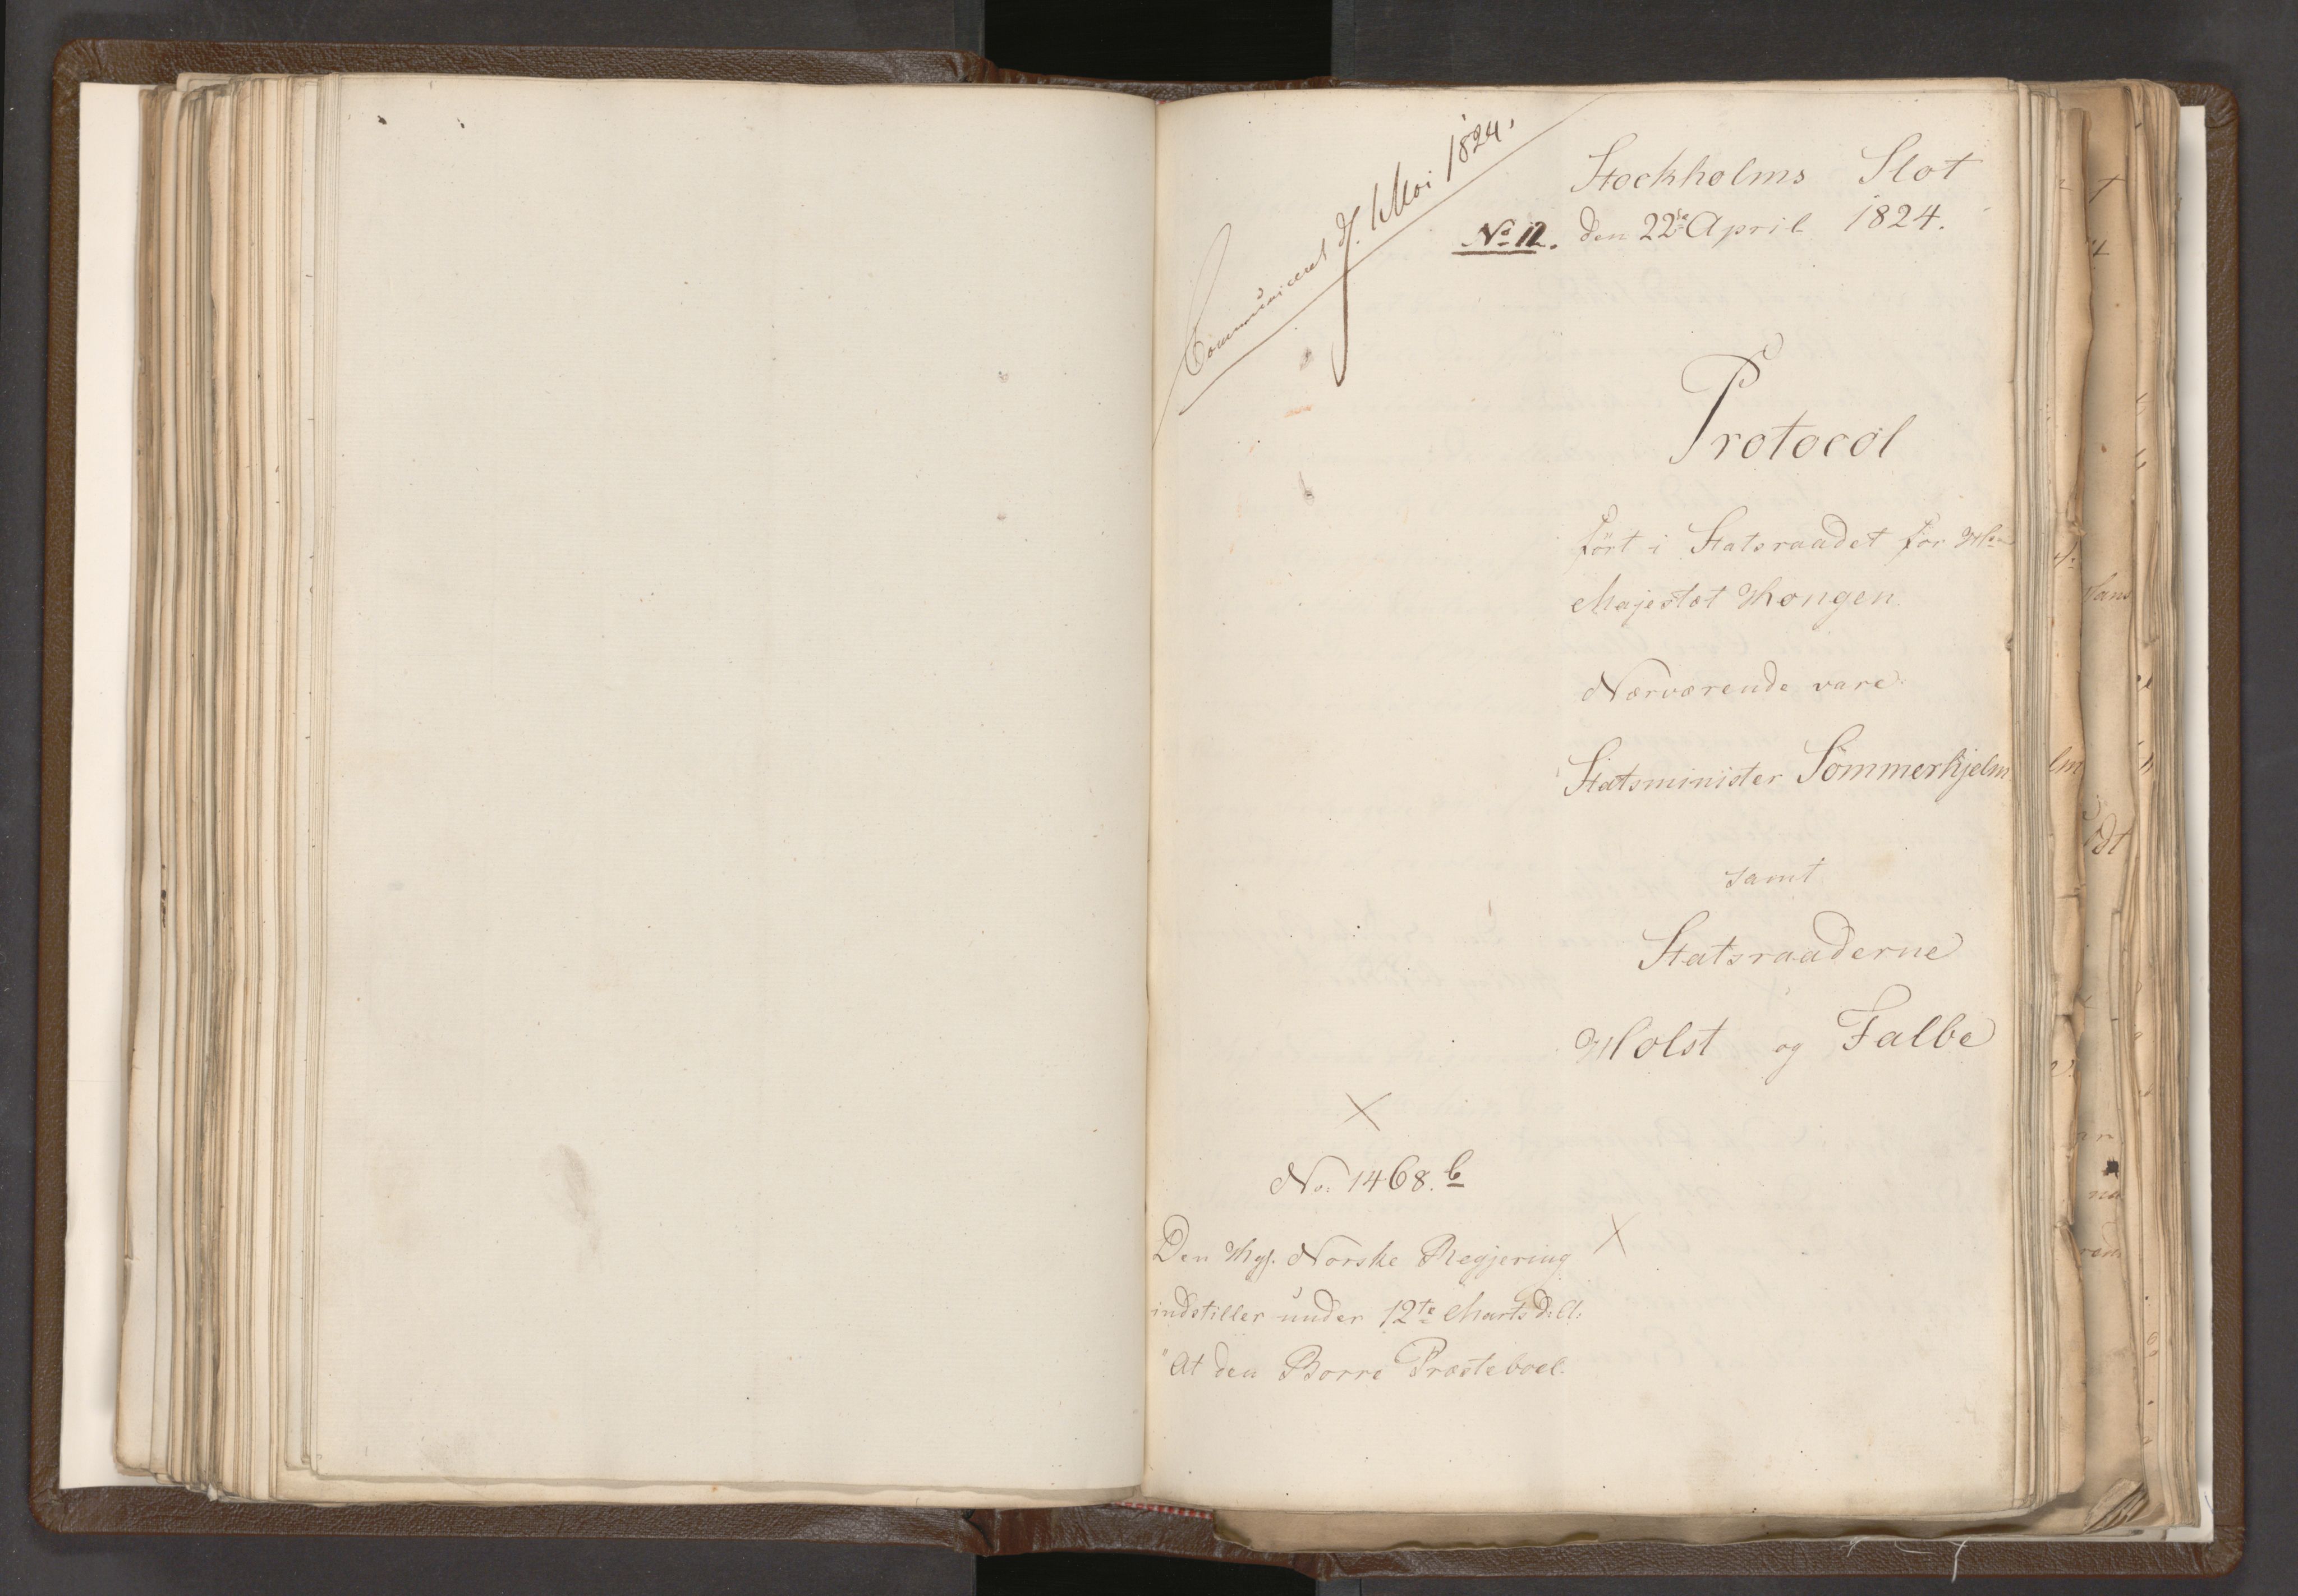 Communiceret d. 1 Mai 1824.
Stockholms Slot
No 12. den 22de April 1824.
Protocol
ført i Statsraadet for Hs
Majestæt Kongen.
Nærværende vare:
Statsminister Sömmerhjelm
samt
Statsraaderne
Holst og Falbe
No: 1468. b
Den Kgl. Norske Regjering
indstiller under 12te Marts d: A:
"At den Borre Præsteboel